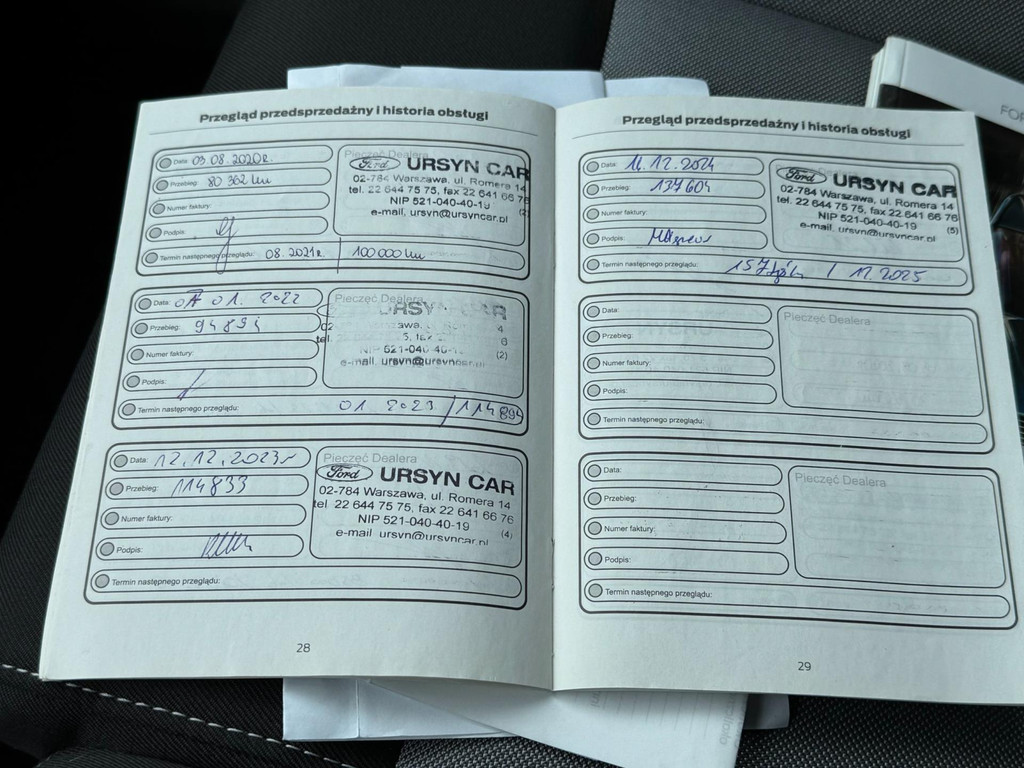 Przegląd przedsprzedażny i historia obsługi
Data: 03.08.2020r.
Przebieg: 80 362 km
Numer faktury:
Podpis:
Termin następnego przeglądu: 08.2021r. / 100 000 km
Pieczęć Dealera
Ford URSYN CAR
02-784 Warszawa, ul. Romera 14
tel. 22 644 75 75, fax 22 641 66 76
NIP 521-040-40-19
e-mail, ursyn@ursyncar.pl
Data: 07 01. 2022
Przebieg: 94894
Numer faktury:
Podpis:
Termin następnego przeglądu: 01. 2023 / 114 894
Pieczęć Dealera
URSY CAR
(2)
e-mail, ursyn@ursyncar.pl
Data: 12.12.2023r
Przebieg: 114833
Numer faktury:
Podpis:
Termin następnego przeglądu:
Pieczęć Dealera
Ford URSYN CAR
02-784 Warszawa, ul. Romera 14
tel. 22 644 75 75, fax 22 641 66 76
NIP 521-040-40-19
e-mail ursyn@ursyncar.pl (4)
28
Przegląd przedsprzedażny i historia obsługi
Data: 12.2024
Przebieg: 137604
Numer faktury:
Podpis:
Termin następnego przeglądu: 157 / 2025
Ford URSYN CAR
02-784 Warszawa, ul. Romera 14
tel. 22 644 75 75, fax 22 641 66 76
NIP 521-040-40-19
e-mail, ursyn@ursyncar.pl (5)
Data:
Przebieg:
Numer faktury:
Podpis:
Termin następnego przeglądu:
Pieczęć Dealera
Data:
Przebieg:
Numer faktury:
Podpis:
Termin następnego przeglądu:
Pieczęć Dealera
29